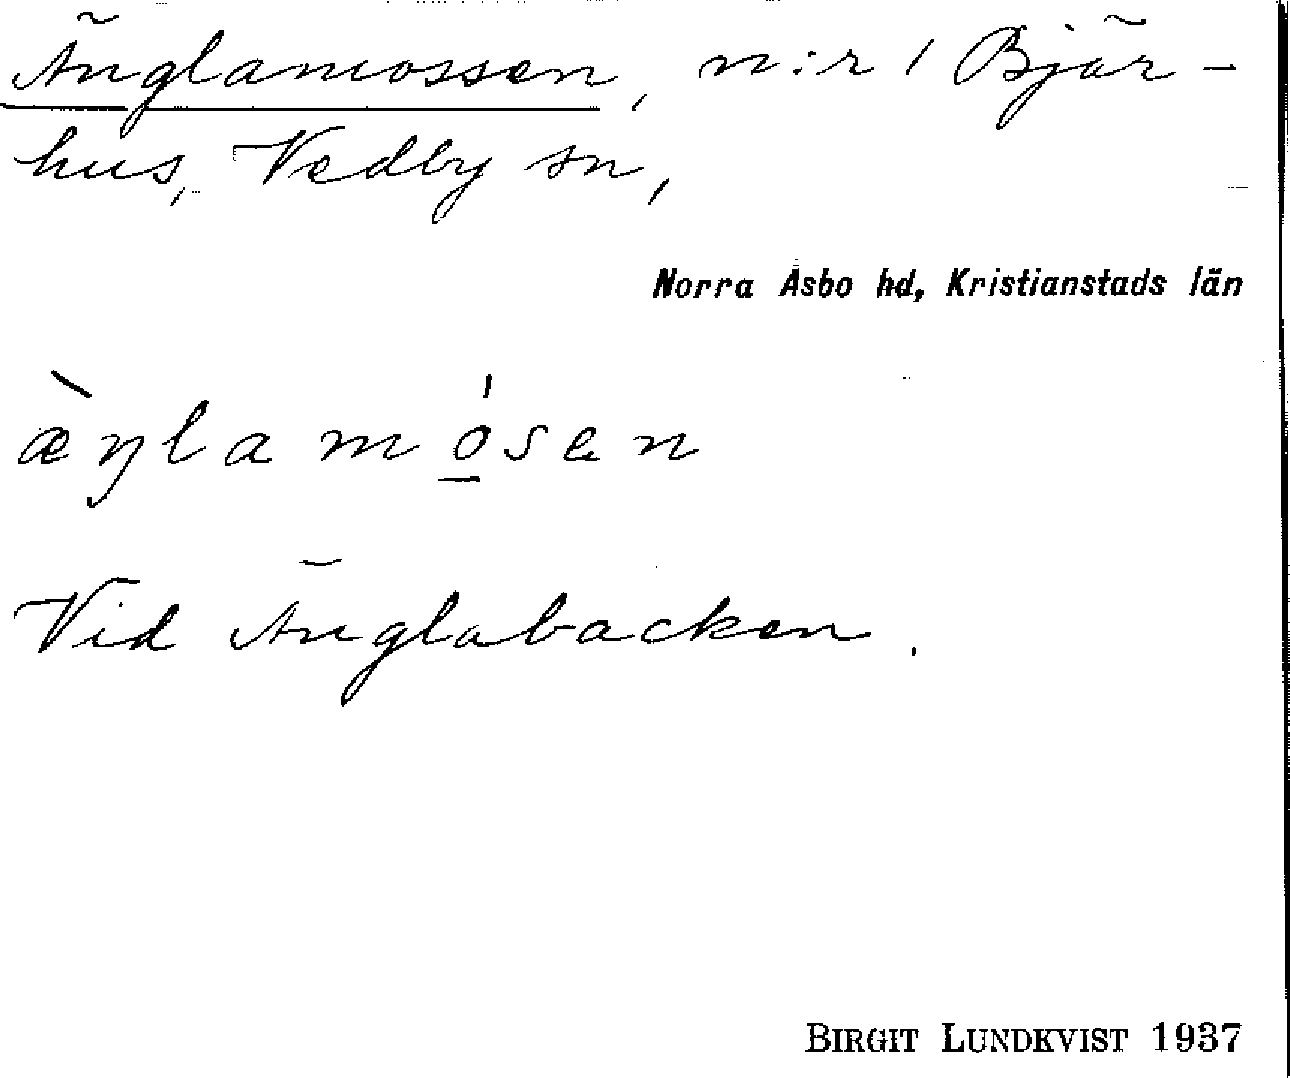 Änglamossen, n:r 1 Bjär-
hus, Vedby sn,
Norra Åsbo hd, Kristianstads län
æ̀ŋlamó̱sen
Vid Änglabacken.
BIRGIT LUNDKVIST 1937